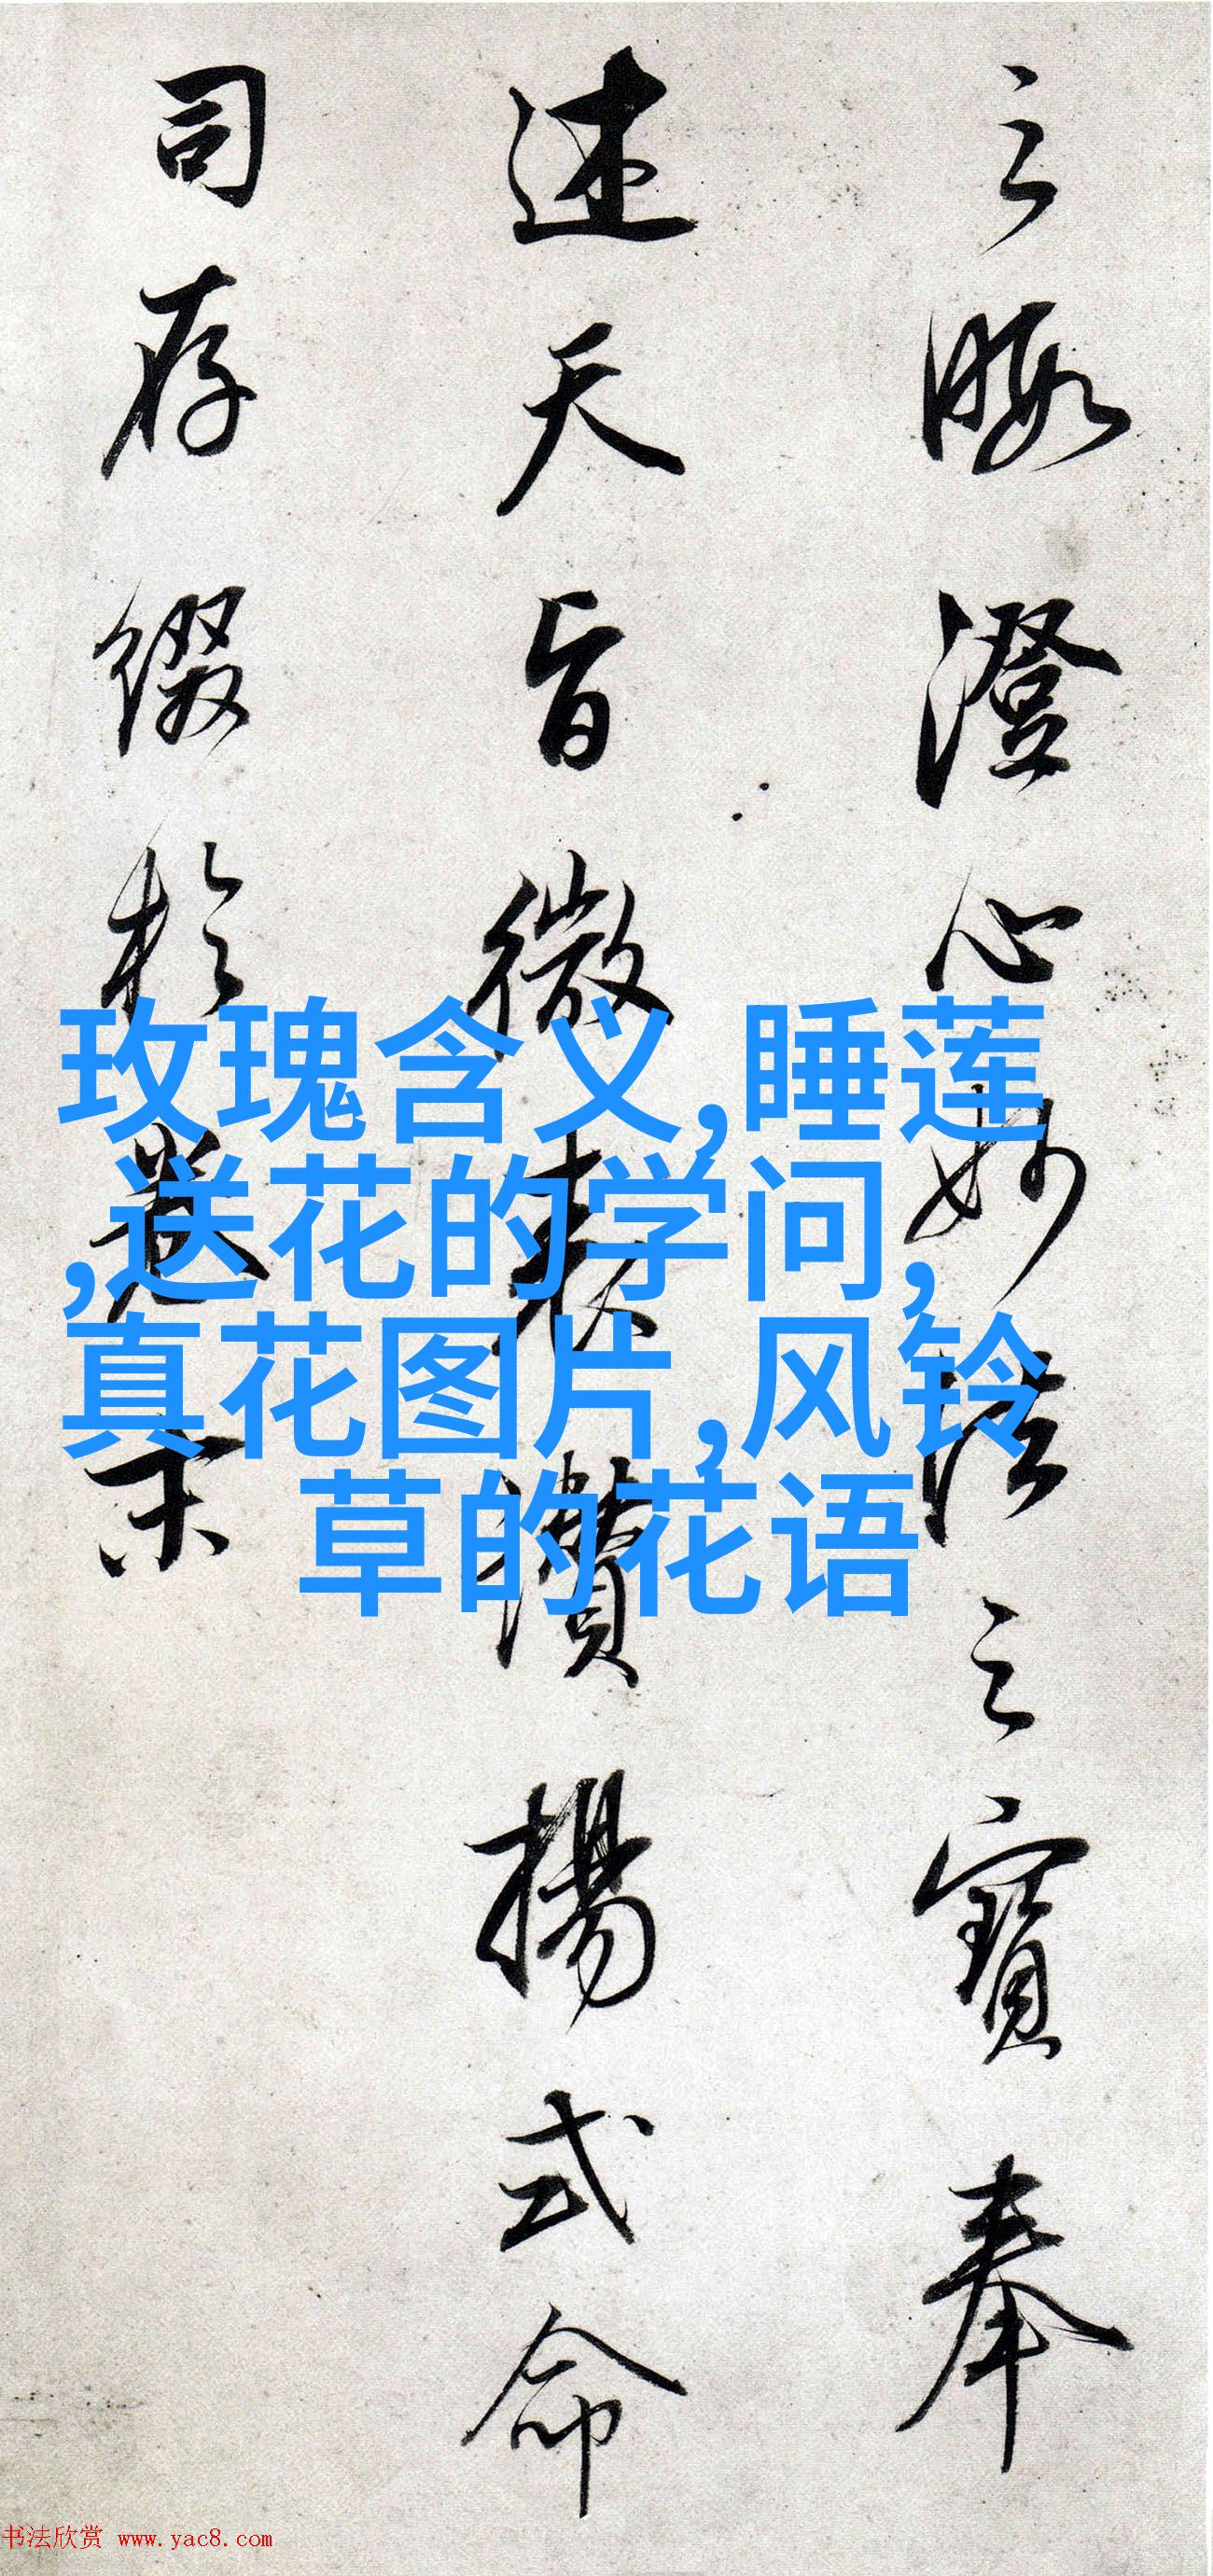 之暇澄心妙法之寶奉
述天旨微表讚揚式命
司存綴於卷末
玫瑰含义,睡莲
,送花的学问,
真花图片,风铃
草的花语
书法欣赏 www.yac8.com